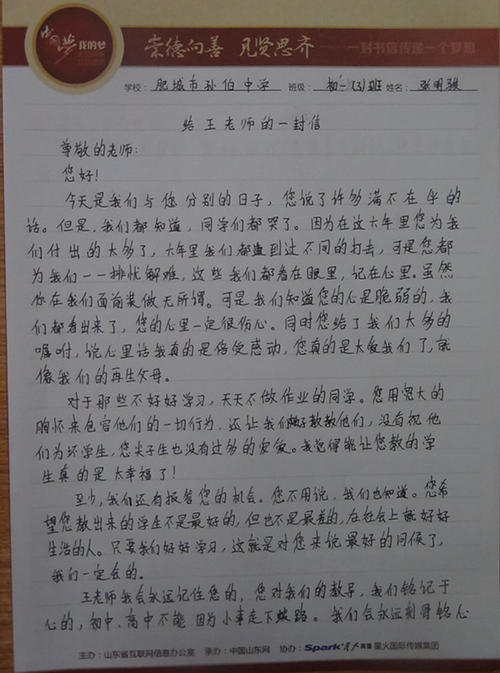 中国梦 我的梦
崇德向善 见贤思齐 一封书信传递一个梦想
学校：肥城市孙伯中学 班级：初一（3）班 姓名：张明骏
给王老师的一封信
尊敬的老师：
您好！
今天是我们与您分别的日子，您说了许多满不在乎的
话。但是，我们都知道，同学们都哭了。因为在这六年里您为我
们付出的太多了，六年里我们都遭到过不同的打击，可是您都
为我们一一排忧解难，这些我们都看在眼里，记在心里。虽然
你在我们面前装做无所谓。可是我们知道您的心是脆弱的，我
们都看出来了，您的心里一定很伤心。同时您给了我们太多的
嘱咐，说心里话我真的是倍受感动，您真的是太爱我们了，就
像我们的再生父母。
对于那些不好好学习，天天不做作业的同学。您用宽大的
胸怀来包容他们的一切行为，还让我们教他们，没有视他
们为坏学生，您尖子生也没有过多的宠爱。我觉得能让您教的学
生真的是太幸福了！
至少，我们还有报答您的机会。您不用说，我们也知道。您希
望您教出来的学生不是最好的，但也不是最差的，在社会上能好好
生活的人。只要我们好好学习，这就是对您来说最好的问候了，
我们一定会的。
王老师我会永远记住您的，您对我们的教导，我们铭记于
心的，初中、高中不能因为小事走下坡路。我们会永远刻骨铭心
主办：山东省互联网信息办公室 承办：中国山东网 协办：Spark 星火国际传媒集团